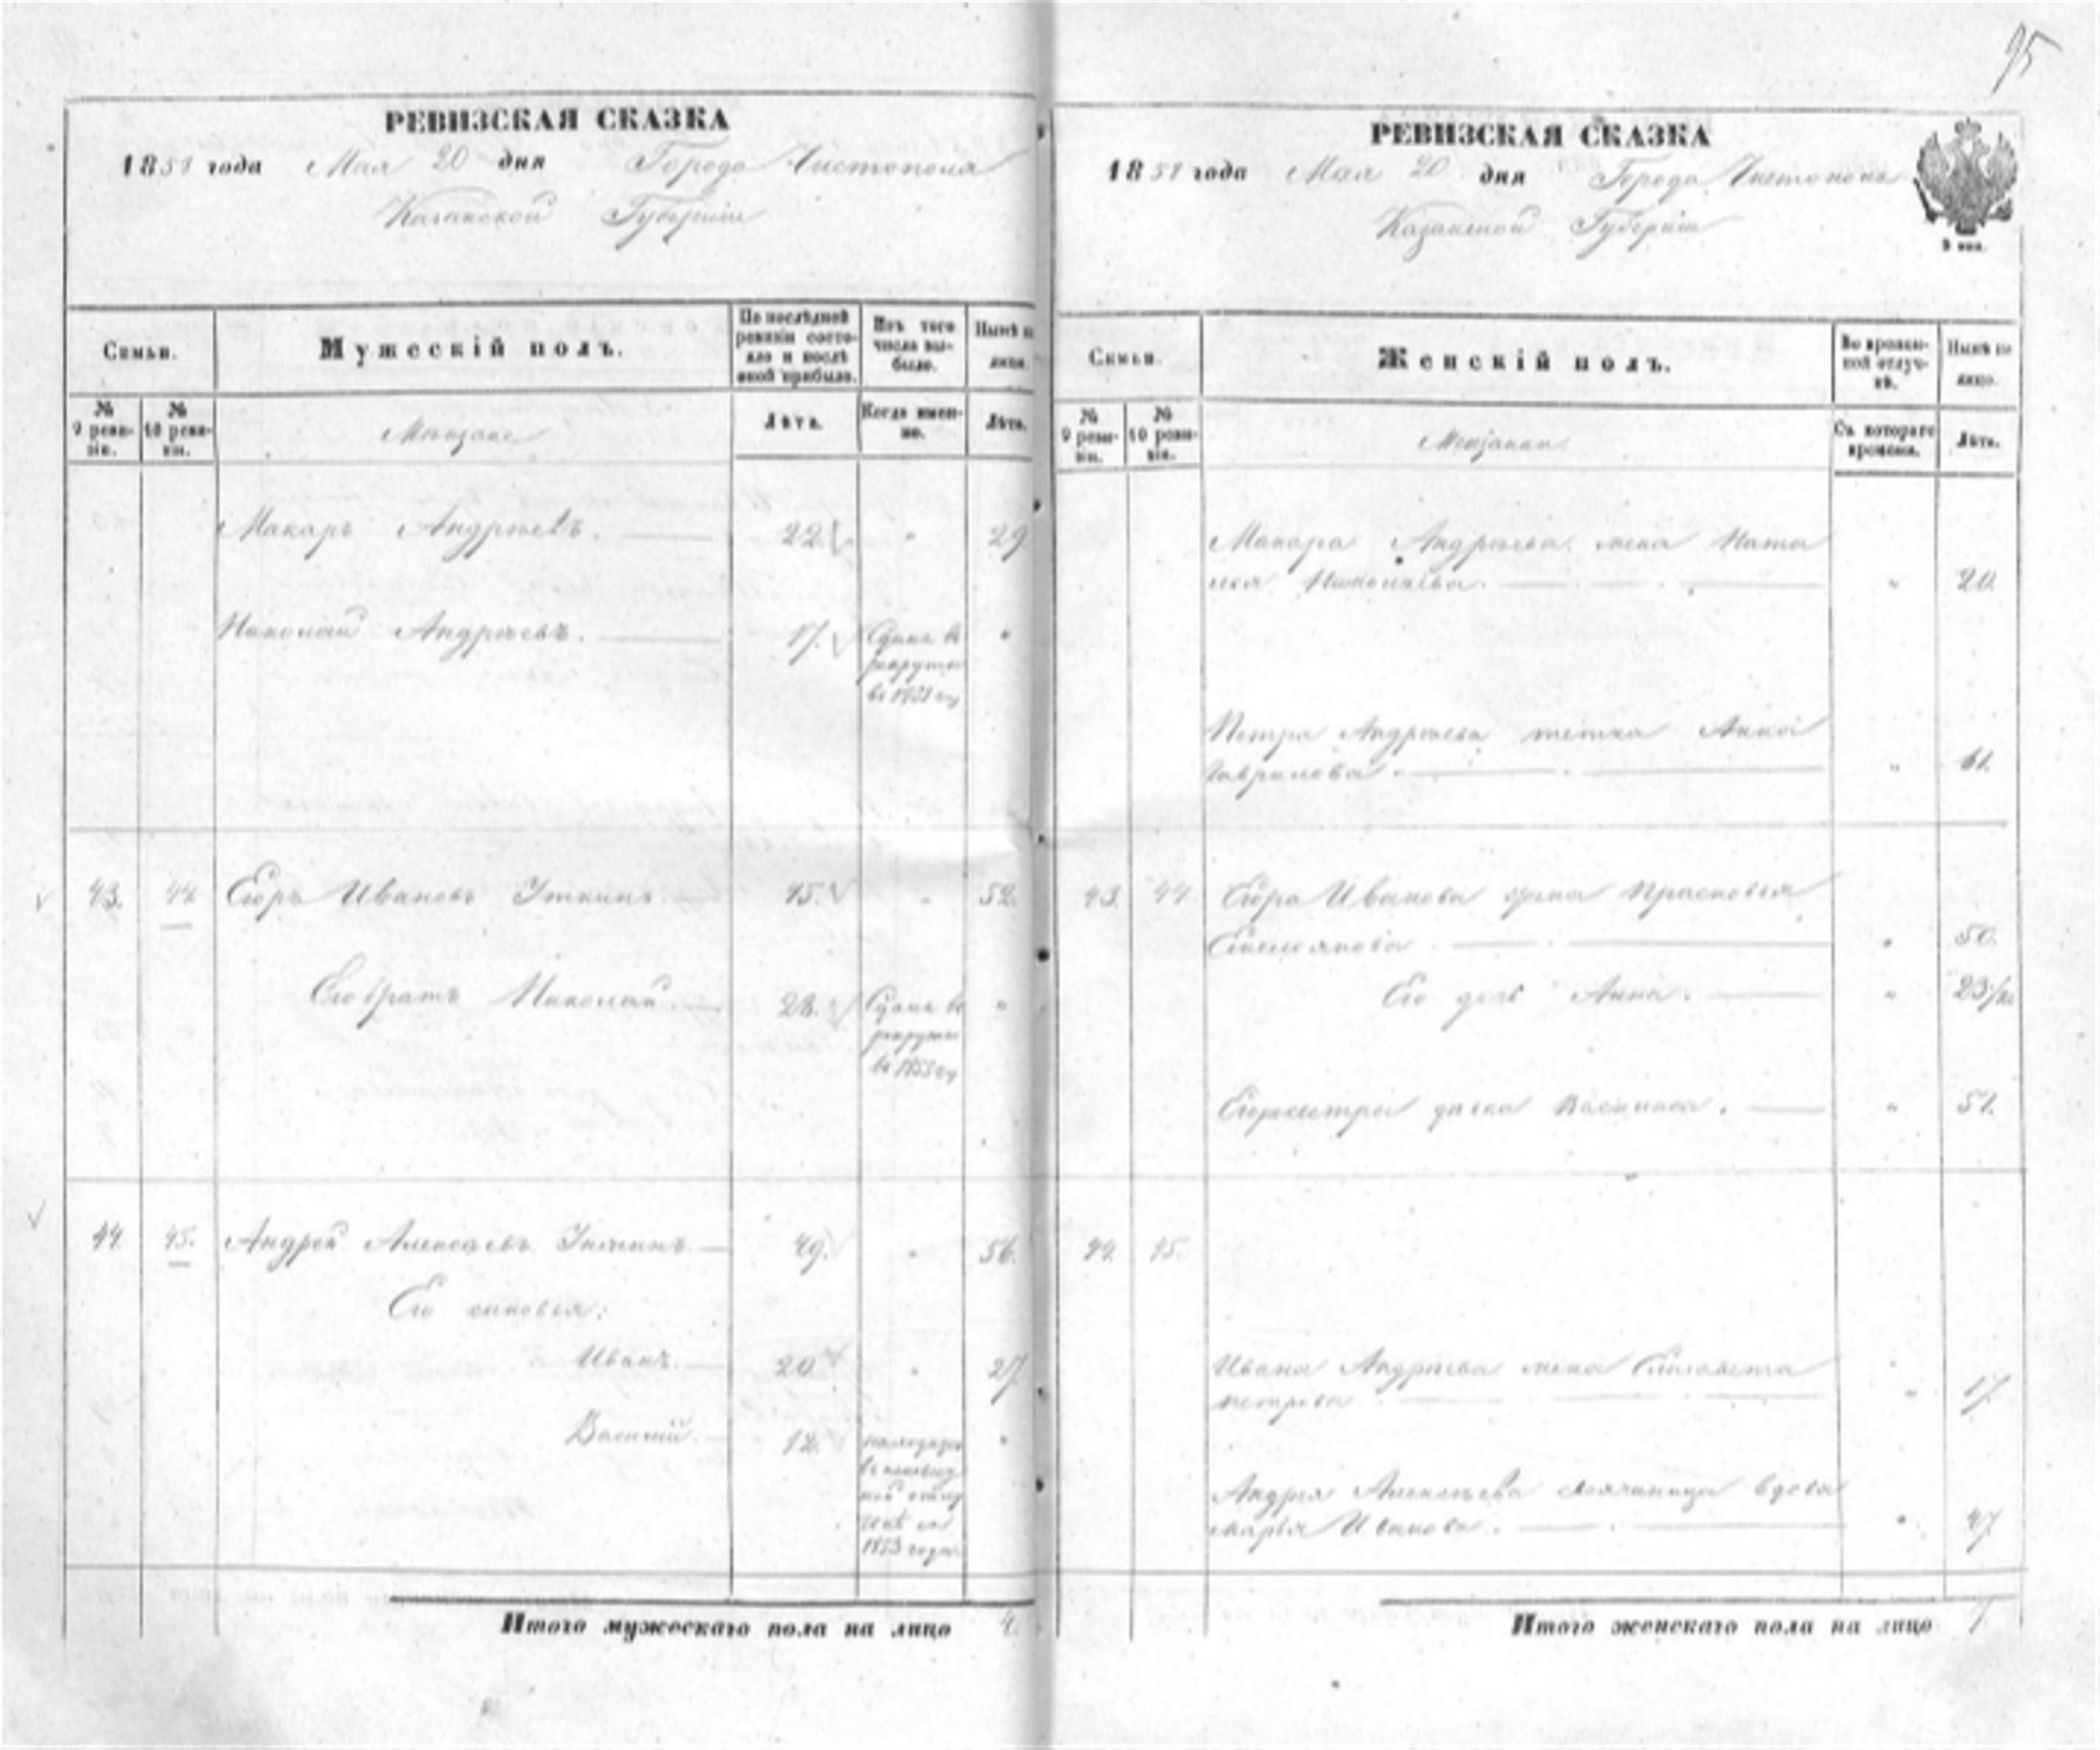 95
РЕВИЗСКАЯ СКАЗКА
1858 года Мая 20 дня Города Чистополя
Казанской Губернiи
Семьи.
Мужескiй полъ.
По послѣдней ревизiи состояло и послѣ оной прибыло.
Изъ того числа выбыло.
Нынѣ на лицо.
№ 9 ревизiи.
№ 10 ревизiи.
Мѣщане
Лѣта.
Когда именно.
Лѣта.
Макаръ Андрѣевъ. 22. " 29.
Николай Андрѣевъ. 17. Сданъ въ рекруты въ 1851 году "
43. 44. Егоръ Ивановъ Уткинъ. 45. " 52.
Его братъ Николай. 28. Сданъ въ рекруты въ 1855 году "
44. 45. Андрей Алексѣевъ 49. " 56.
Его сыновья:
Иванъ. 20 " 27.
Василiй. 12. 1853 года "
Итого мужескаго пола на лицо 4.
РЕВИЗСКАЯ СКАЗКА
1858 года Мая 20 дня Города Чистополя
Казанской Губернiи
Семьи.
Женскiй полъ.
Во временной отлучкѣ.
Нынѣ на лицо.
№ 9 ревизiи.
№ 10 ревизiи.
Мѣщанки
Съ котораго времени.
Лѣта.
Макара Андрѣева жена Ната
лья Николаева. " 20.
Петра Андрѣева тетка Анна
Гаврилова. " 61.
43. 44. Егора Иванова жена Прасковья
Емельянова " 50.
Его дочь Анна. " 23
Егора сестра дѣвка Василиса. " 51.
44. 45.
Ивана Андрѣева жена Елизавета
Петрова " 17.
Андрея Алексѣева вдова
Марья Иванова. " 47
Итого женскаго пола на лицо 7